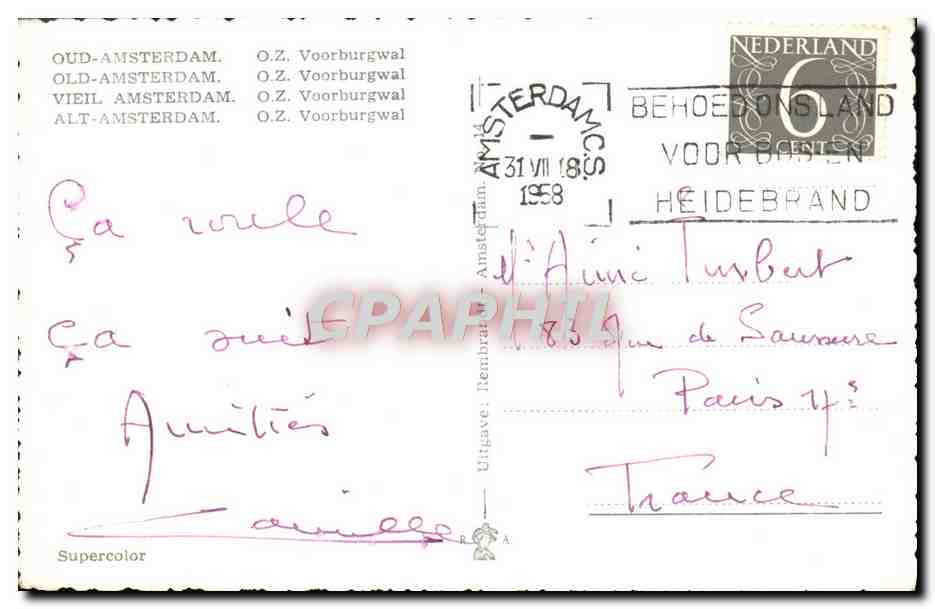 OUD-AMSTERDAM. O.Z. Voorburgwal
OLD-AMSTERDAM. O.Z. Voorburgwal
VIEIL AMSTERDAM. O.Z. Voorburgwal
ALT-AMSTERDAM. O.Z. Voorburgwal
NEDERLAND
6
CENT
AMSTERDAM C.S.
31 VII 18
1958
BEHOED ONS LAND
VOOR BOS EN
HEIDEBRAND
Ça roule
ça suit
Amitiés
Camille
Supercolor
Uitgave: Rembrandt - Amsterdam. No. 14
R A
CPAPHIL
Mr Aimé
83 Rue de Saussure
Paris 17e
France